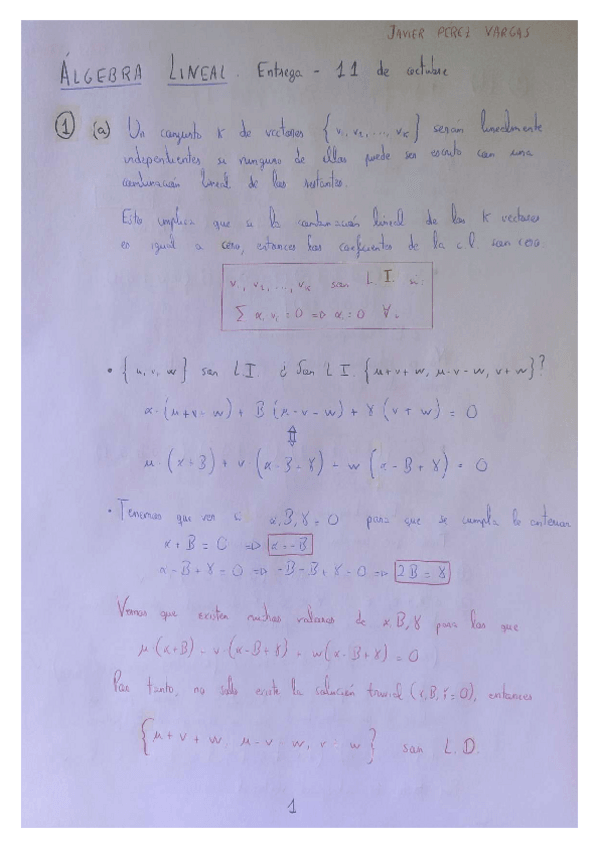 JAVIER PEREZ VARGAS
ÁLGEBRA LINEAL. Entrega - 11 de octubre
1 (a) Un conjunto K de vectores {v₁, v₂, ..., vₖ} serán linealmente
independientes si ninguno de ellos puede ser escrito con una
combinación lineal de los restantes.
Esto implica que si la combinación lineal de los K vectores
es igual a cero, entonces los coeficientes de la c.l. son cero.
v₁, v₂, ..., vₖ son L I si:
∑ αᵢ vᵢ = 0 => αᵢ = 0 ∀ᵢ
• {u, v, w} son L I. ¿ Son L I. {u+v+w, u-v-w, v+w}?
α·(u+v+w) + B(u-v-w) + γ(v+w) = 0
⇕
u·(α+B) + v·(α-B+γ) + w(α-B+γ) = 0
• Tenemos que ver si α, B, γ = 0 para que se cumpla lo anterior
α + B = 0 => α = -B
α - B + γ = 0 => -B - B + γ = 0 => 2B = γ
Vemos que existen muchos valores de α, B, γ para los que
u·(α+B) + v·(α-B+γ) + w(α-B+γ) = 0
Por tanto, no solo existe la solución trivial (α, B, γ = 0), entonces
{u+v+w, u-v-w, v+w} son L.D.
1